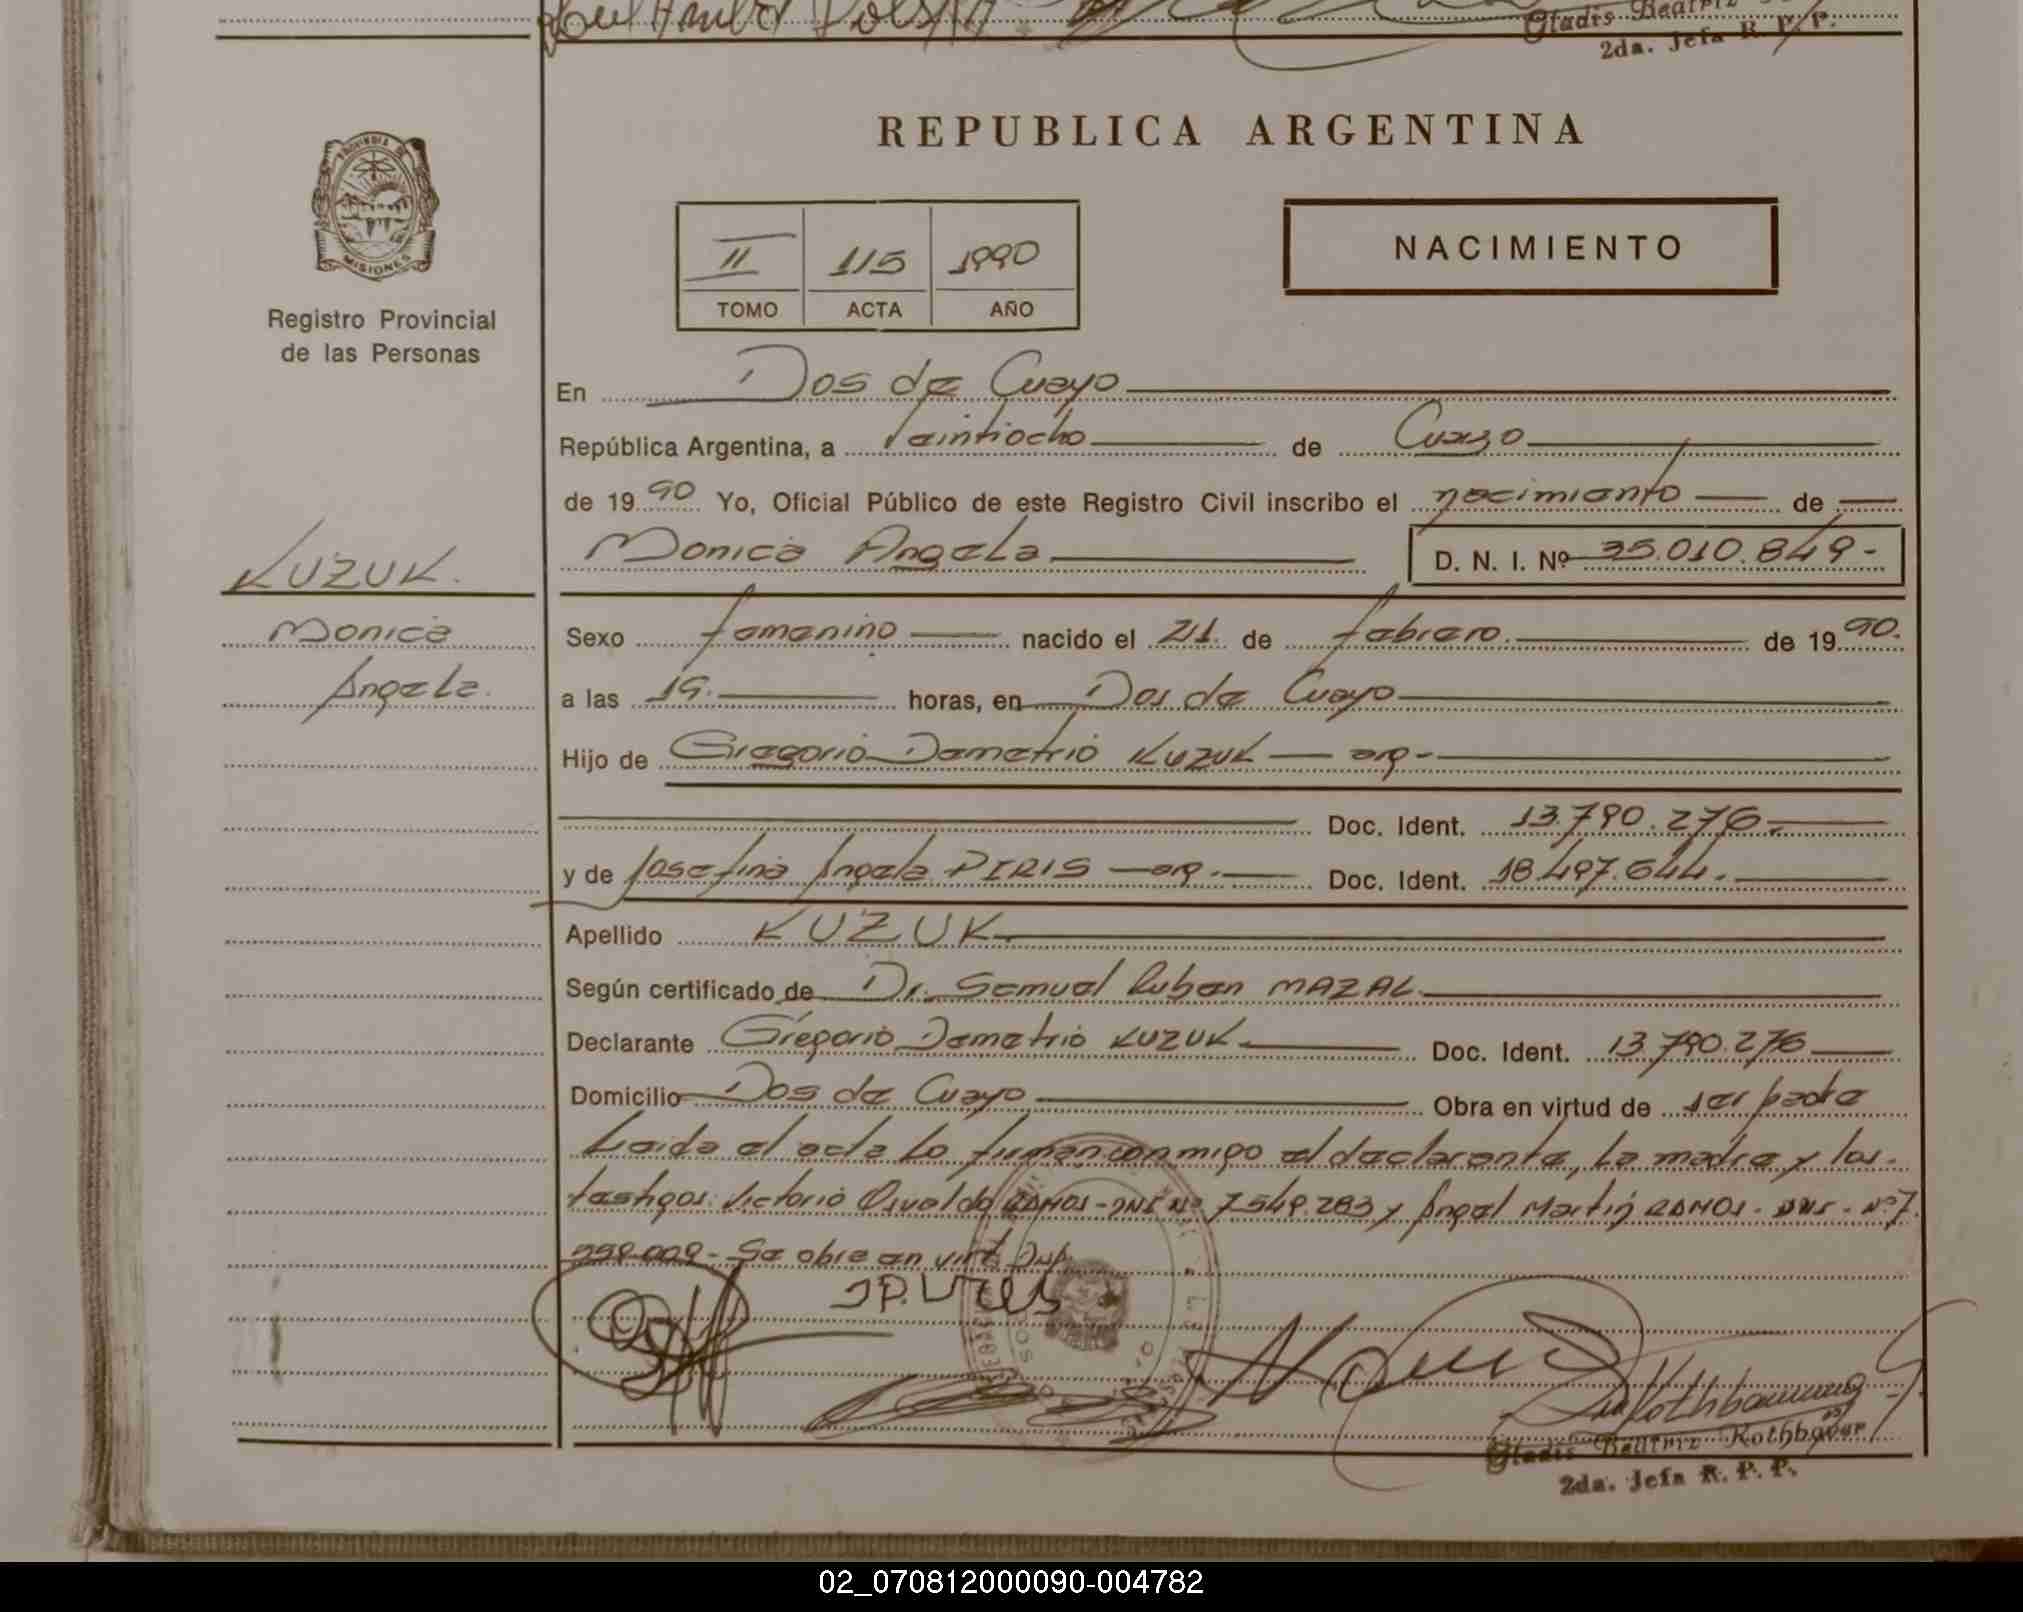 Gladis Beatriz
2da. Jefa R. P. P.
REPUBLICA ARGENTINA
PROVINCIA DE
MISIONES
Registro Provincial
de las Personas
II 115 1990
TOMO ACTA AÑO
NACIMIENTO
En Dos de Mayo
República Argentina, a Veintiocho de Marzo
de 1990 Yo, Oficial Público de este Registro Civil inscribo el nacimiento de
KUZUK.
Monica Angela D. N. I. Nº 35.010.849-
Monica
Angela.
Sexo femenino nacido el 21. de febrero. de 1990.
a las 19. horas, en Dos de Mayo
Hijo de Gregorio Demetrio KUZUK — arg-
Doc. Ident. 13.790.276.
y de Josefina Angela PIRIS — arg. Doc. Ident. 18.497.644.
Apellido KUZUK
Según certificado de Dr. Samuel Ruben MAZAL
Declarante Gregorio Demetrio KUZUK Doc. Ident. 13.790.276
Domicilio Dos de Mayo Obra en virtud de ser padre
Leida el acta lo firman conmigo el declarante, la madre y los
testigos: Victorio Osvaldo RAMOS-DNI Nº 7.549.283 y Angel Martin RAMOS. DNI. Nº 7.
559.009- Se obre en virt.
Gladis Beatriz Rothbauer
2da. Jefa R. P. P.
02_070812000090-004782